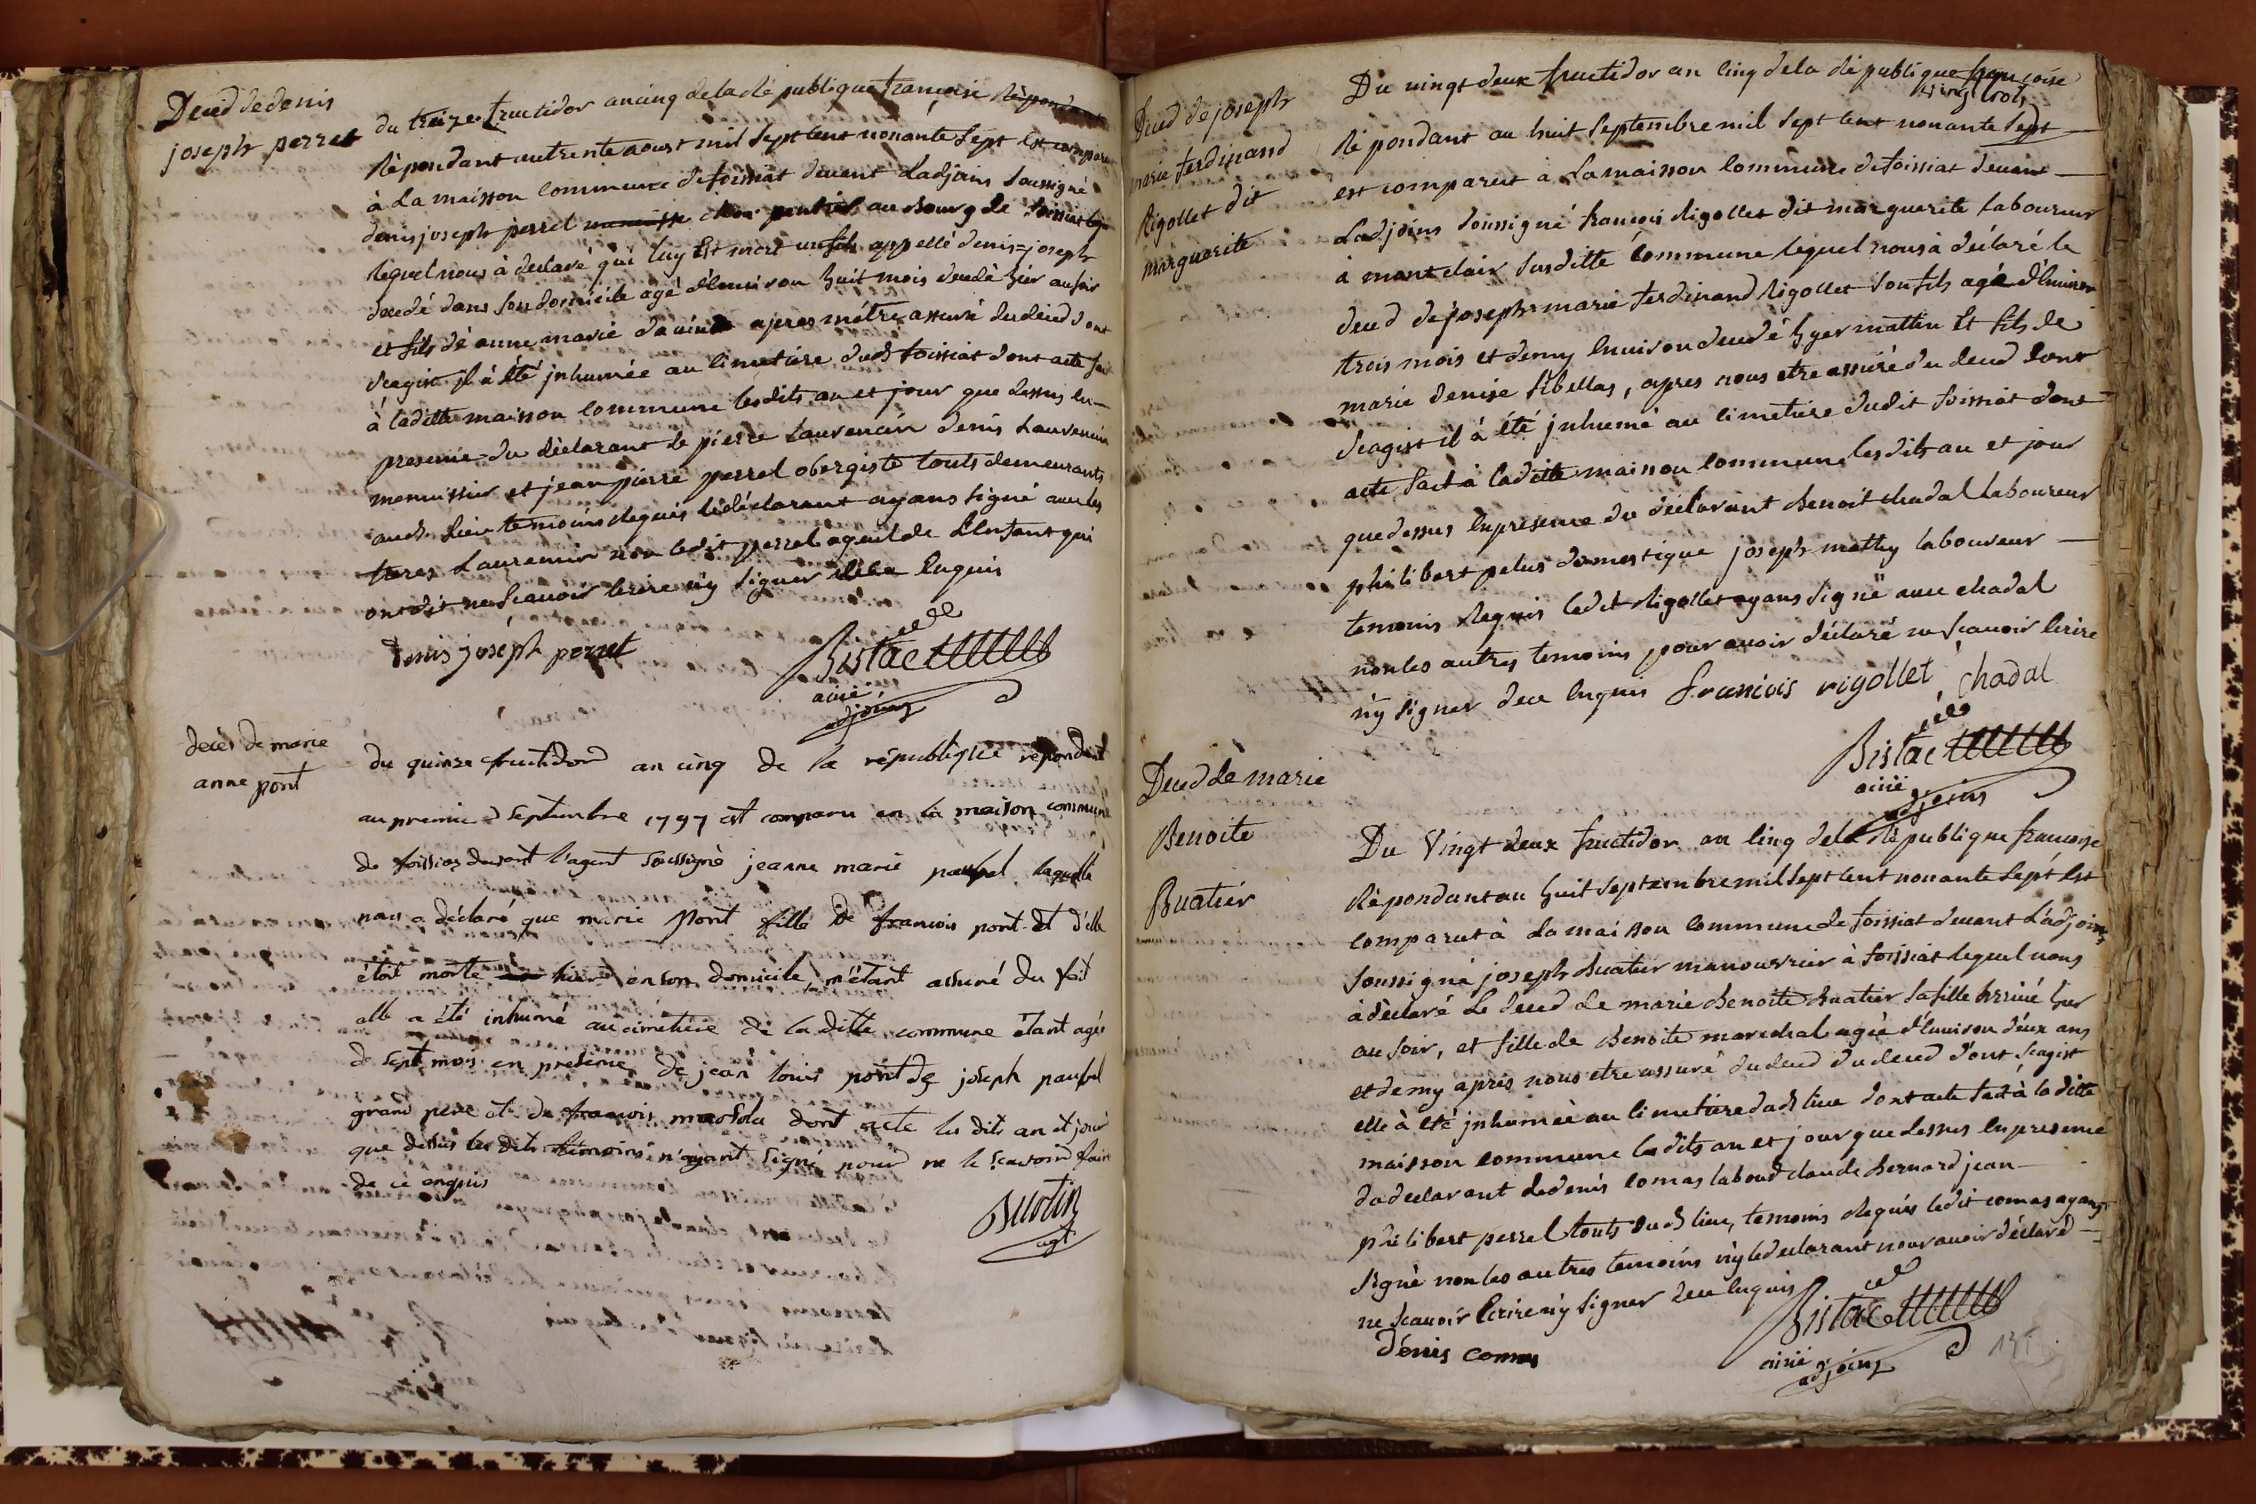 Deced de denis
joseph perret
du treize fructidor an cinq de la Republique francaise Répondant
Répondant au trente aoust mil Sept Cent nonante Sept Est comparu
à La maison Commune de foissiat devant Ladjoins Soussigné
denis joseph perret au bourg de foissiat
lequel nous à declaré qui luy Est mort un fils appellé denis=joseph
decedé dans son domicile agé d'Environ huit mois decedé hier au soir
et fils de anne marie apres métre assuré du deced dont
Seagist il à été jnhumée au Cimetiere dud foissiat dont acte fai
à laditte maison Commune lesdits an et jour que dessus En
presence du déclarant de pierre Laurencin denis Laurencin
menuissier et jean pierre perret obergiste touts demeurants
aud. Lieu temoins Requis le déclarant ayans Signé avec les
freres Laurencin non ledit perret ayeul de L'Enfant qui
ont dit ne Scavoir Ecrire n'y Signer Enquis
denis joseph perret
Bistac
ainé
adjoins
decès de marie
anne pont
du quinze fructidor an cinq de la république répondant
au premier Septembre 1797 est comparu en la maison commune
de foissiat devant l'agent soussigné jeanne marie laquelle
nous a déclaré que marie pont fille de francois pont et d'elle
étoit morte hier en son domicile, m'étant assuré du fait
elle a été inhumé au cimétiére de la ditte commune étant agée
de sept mois en presence de jean louis pont de joseph
grand pere et de francois dont acte les dits an et jour
que dessus les dits témoins n'ayant signé pour ne le scavoir faire
de ce enquis
Buotin
agt
Deced de joseph
marie ferdinand
Rigollet dit
marguerite
Du vingt deux fructidor an Cinq de la Republique francoise
vingt trois
Répondant au huit Septembre mil Sept Cent nonante Sept
est comparut à La maison Commune de foissiat devant
Ladjoins Soussigné francois Rigollet dit marguerite Laboureur
à montclair Susditte Commune lequel nous à déclaré le
deced de joseph=marie ferdinand Rigollet Son fils agé d'Environ
trois mois et demy Environ decedé hyer mattin Et fils de
marie denise Sibellas, apres nous etre assuré du deced dont
Seagist il à été jnhumé au Cimetiere dudit foissiat dont
acte fait à laditte maison Commune, lesdits an et jour
que dessus En presence du déclarant Benoit chadal Laboureur
philibert pelus domestique joseph mathy laboureur
temoins Requis ledit Rigollet ayans Signé avec chadal
non les autres temoins pour avoir déclaré ne Scavoir Ecrire
n'y Signer dece Enquis francois rigollet chadal
Bistac
ainé
adjoins
Deced de marie
Benoite
Buatier
Du Vingt deux fructidor an Cinq de la Republique francoise
Répondant au huit Septembre mil Sept Cent nonante Sept Est
Comparut à La maison Commune de foissiat devant Ladjoins
Soussigné joseph Buatier manouvrier à foissiat lequel nous
à déclaré Le deced de marie Benoite Buatier Sa fille hier
au Soir, et fille de Benoite marechal agée d'Environ deux ans
et demy apres nous etre assuré du deced du deced dont Seagist
elle à Eté jnhumée au Cimetiere dud lieu dont acte fait à la ditte
maison Commune lesdits an et jour que dessus En presence
du declarant de denis Comas labour claude Bernard jean
philibert perret touts dud lieu, temoins Requis ledit comas ayans
Signé non les autres temoins n'y le declarant pour avoir déclaré
ne Scavoir Ecrire n'y Signer dece Enquis
Bistac
denis comas
ainé
adjoins